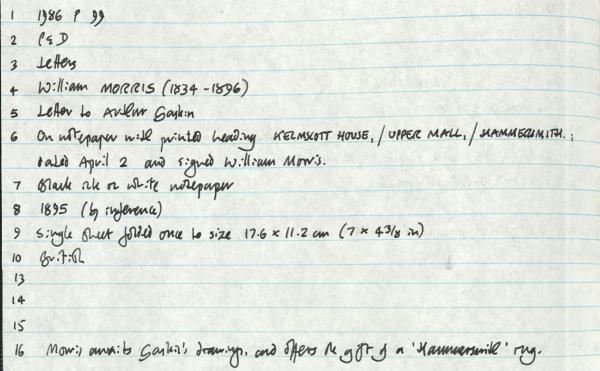 1 1986 P 99
2 P&D
3 Letters
4 William MORRIS (1834-1896)
5 Letter to Arthur Gaskin
6 On notepaper with printed heading KELMSCOTT HOUSE, / UPPER MALL, / HAMMERSMITH. ;
dated April 2 and signed William Morris.
7 Black ink on white notepaper
8 1895 (by inference)
9 Single sheet folded once to size 17.6 × 11.2 cm (7 × 4 3/8 in)
10 British
13
14
15
16 Morris awaits Gaskin's drawings, and offers the gift of a 'Hammersmith' rug.